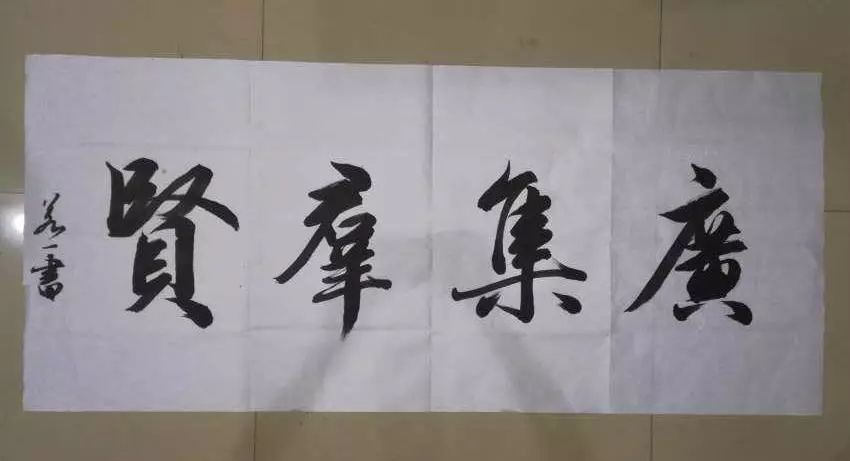 廣集羣賢
若一書